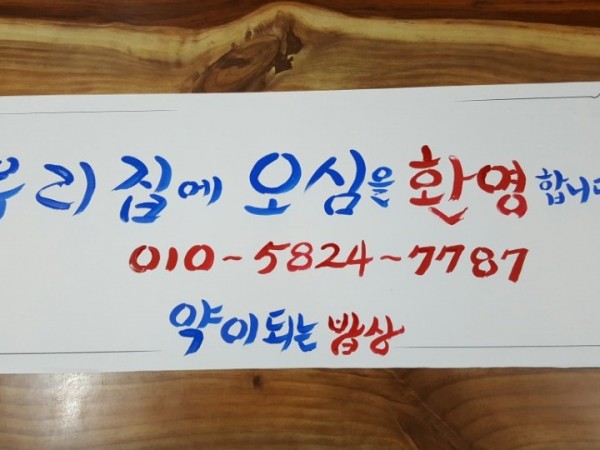 우리 집에 오심을 환영합니다
010~5824~7787
약이되는 밥상